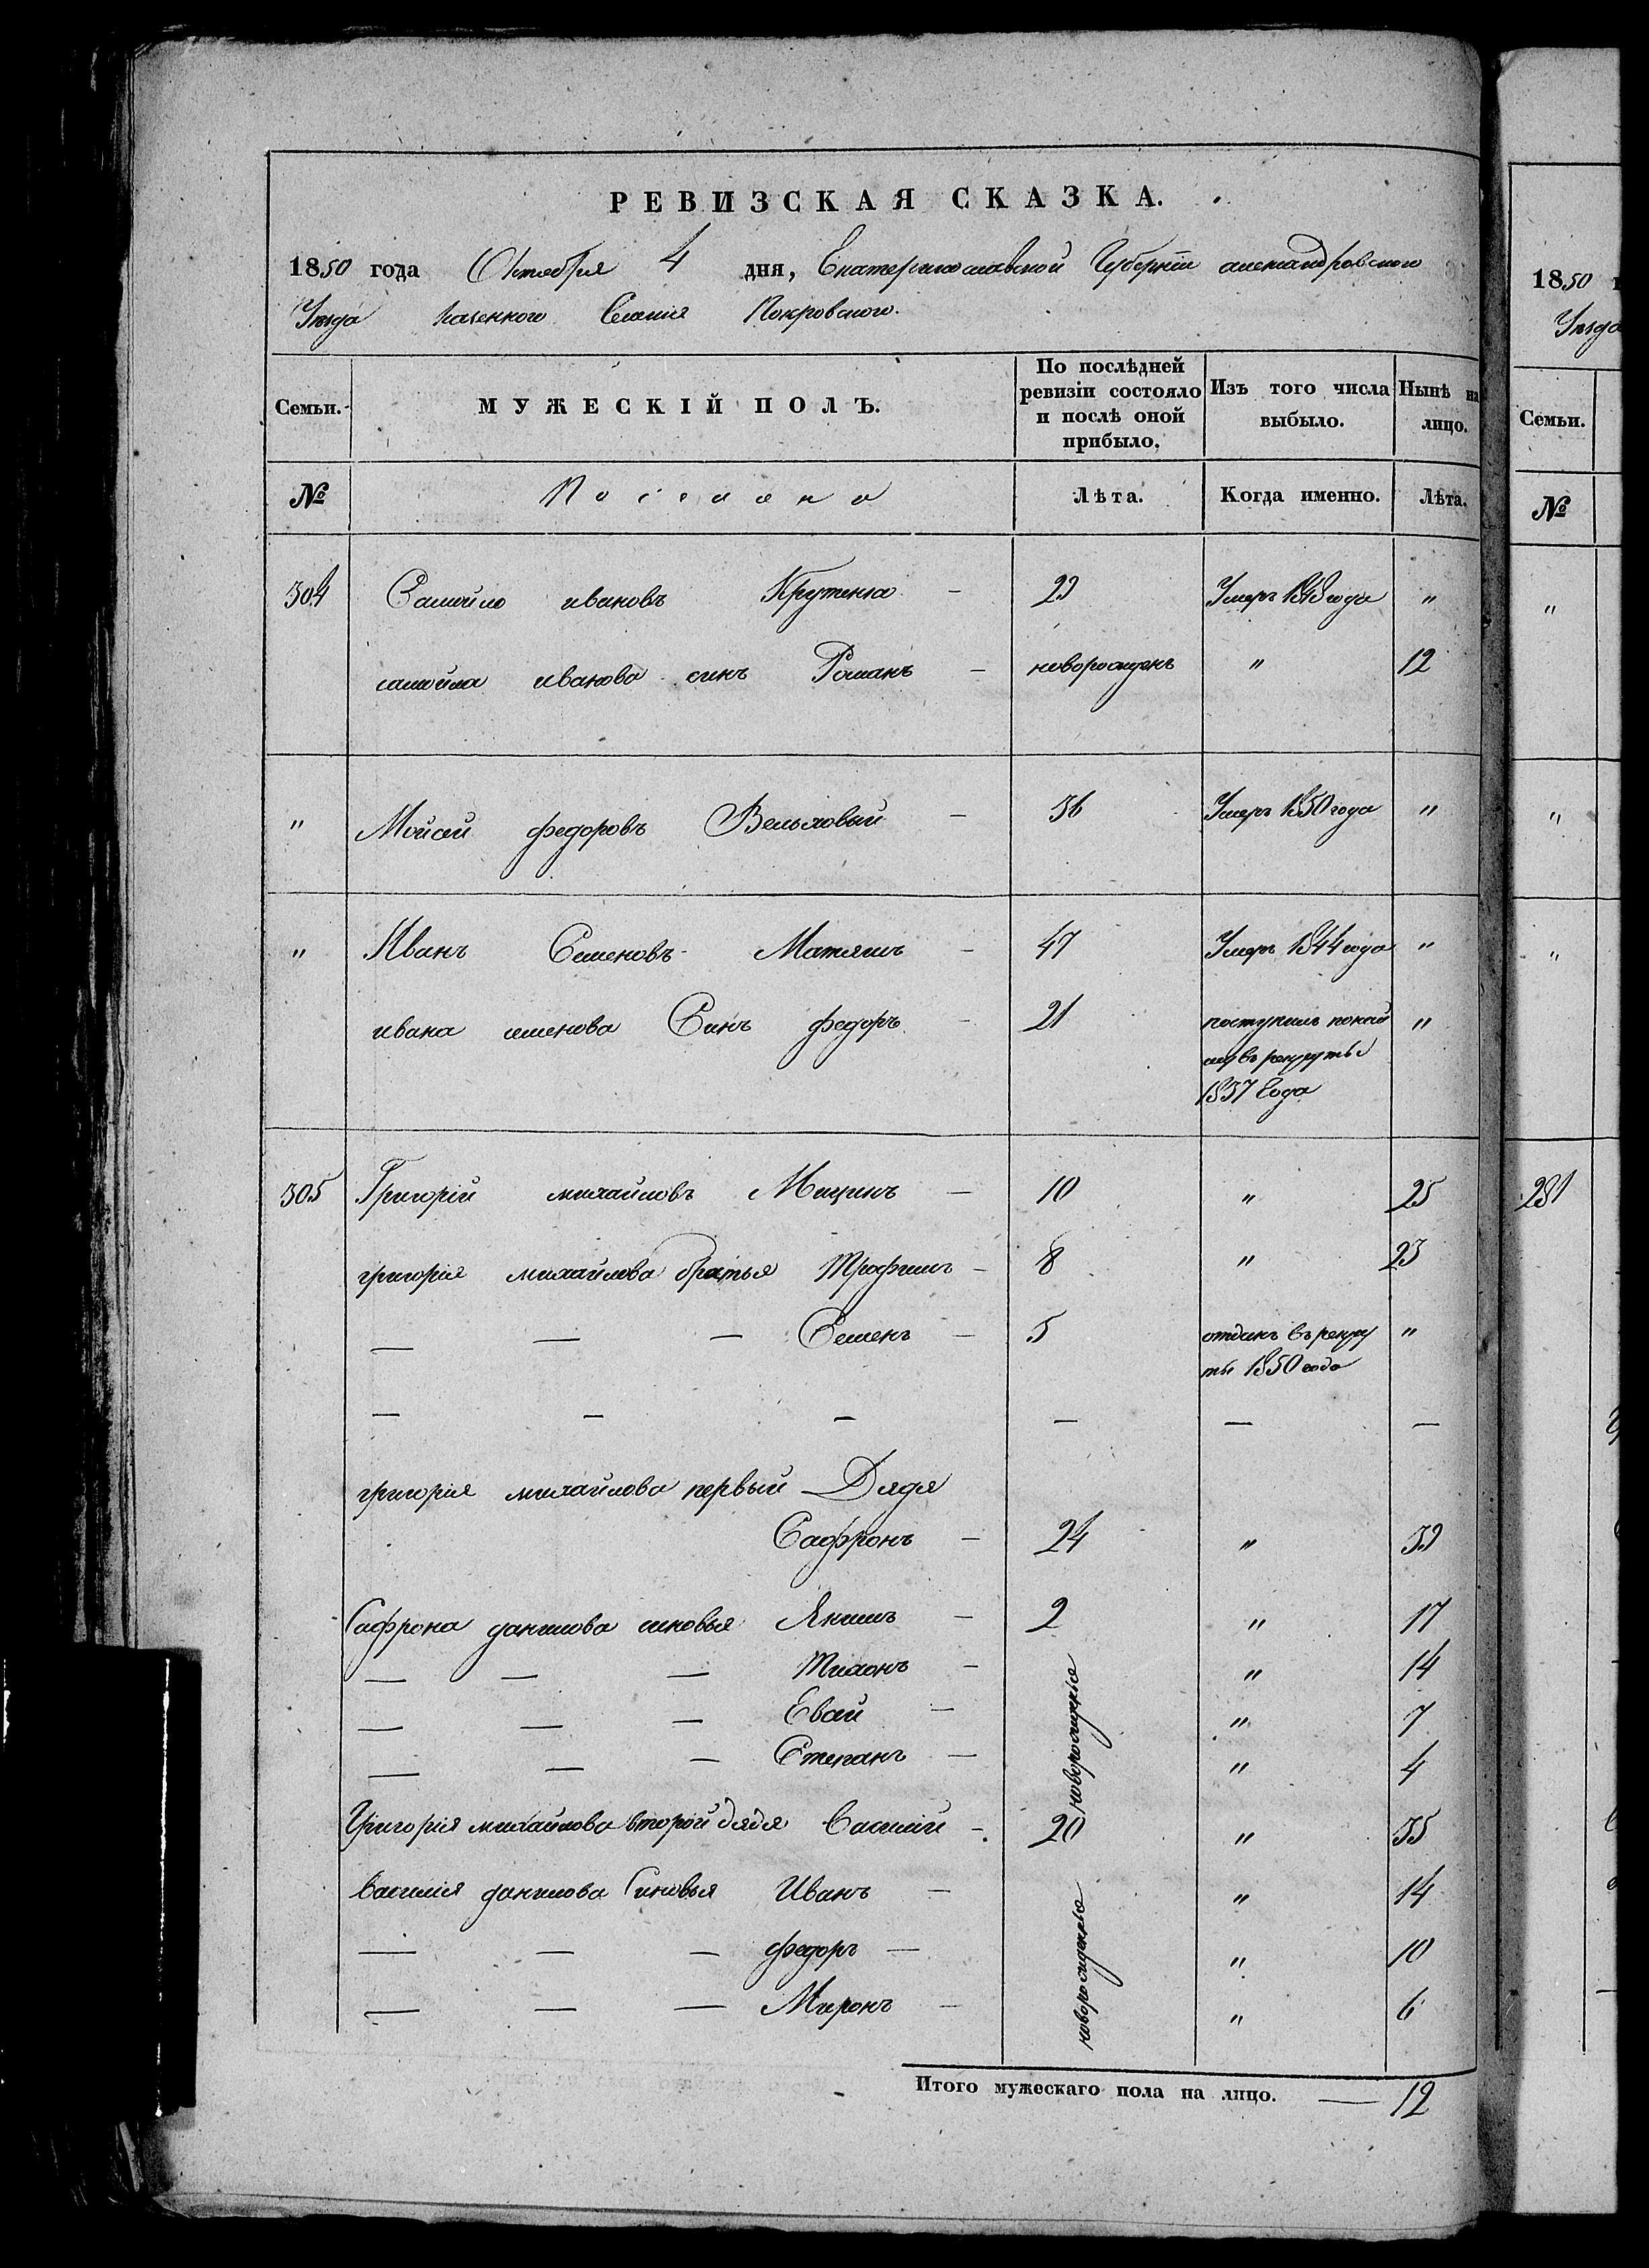 РЕВИЗСКАЯ СКАЗКА.
1850 года Октября 4 дня, Екатеринославской Губерніи александровского
Уезда казенного Селенія Покровского.
Семьи. МУЖЕСКІЙ ПОЛЪ. По послѣдней ревизіи состояло и послѣ оной прибыло. Изъ того числа выбыло. Нынѣ на лицо.
№ Поселяне Лѣта. Когда именно. Лѣта.
304 Самойло ивановъ Крутенко - 23 Умеръ 1848 года "
самойла иванова синъ Романъ - новорожденъ " 12
" Мойсей федоровъ Вельховый - 36 Умеръ 1850 года "
" Иванъ Семеновъ Матяшъ - 47 Умеръ 1844 года "
ивана семенова Синъ федоръ - 21 поступилъ понай
му въ рекруты "
1837 Года
305 Григорій михайловъ Мицикъ - 10 " 25
григорія михайлова братья Трафимъ - 8 " 23
— — — Семенъ - 5 отданъ въ рекру
ты 1850 года "
— — — — — —
григорія михайлова первый Дядя
Сафронъ - 24 " 39
Сафрона данилова синовья Якимъ - 2 " 17
— — — Тихонъ - новорожденніе " 14
— — — Евсей - " 7
— — — Степанъ - " 4
Григорія михайлова второй дядя Василій - 20 " 35
василія данилова Синовья Иванъ - новорожденые " 14
— — — федоръ - " 10
— — — Миронъ - " 6
Итого мужескаго пола на лицо. — 12
1850
Уезда
Семьи.
№
"
"
"
281